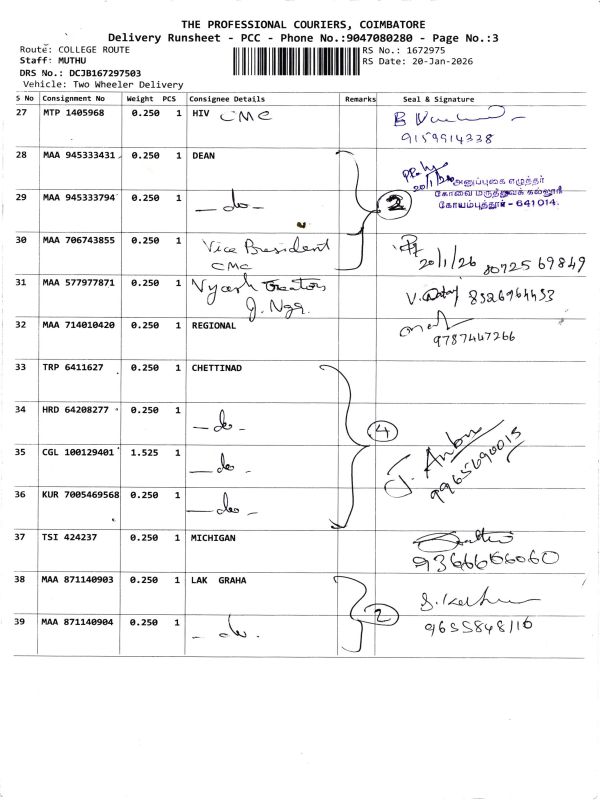 THE PROFESSIONAL COURIERS, COIMBATORE
Delivery Runsheet - PCC - Phone No.:9047080280 - Page No.:3
Route: COLLEGE ROUTE RS No.: 1672975
Staff: MUTHU RS Date: 20-Jan-2026
DRS No.: DCJB167297503
Vehicle: Two Wheeler Delivery
S No Consignment No Weight PCS Consignee Details Remarks Seal & Signature
27 MTP 1405968 0.250 1 HIV CMC
9159914338
28 MAA 945333431 0.250 1 DEAN
20/1/26 அனுப்புகை எழுத்தர்
29 MAA 945333794 0.250 1 -do- 2 கோவை மருத்துவக் கல்லூரி
கோயம்புத்தூர் - 641 014.
30 MAA 706743855 0.250 1 Vice President
CMC 20/1/26 8072569849
31 MAA 577971871 0.250 1 Vyash Creators 8526964453
J. Ngr.
32 MAA 714010420 0.250 1 REGIONAL
9787447266
33 TRP 6411627 0.250 1 CHETTINAD
34 HRD 64208277 0.250 1 -do- 4
35 CGL 100129401 1.525 1 -do- J. Anbu
9965690015
36 KUR 7005469568 0.250 1 -do-
37 TSI 424237 0.250 1 MICHIGAN
9366666060
38 MAA 871140903 0.250 1 LAK GRAHA
39 MAA 871140904 0.250 1 -do. 2 9655848116